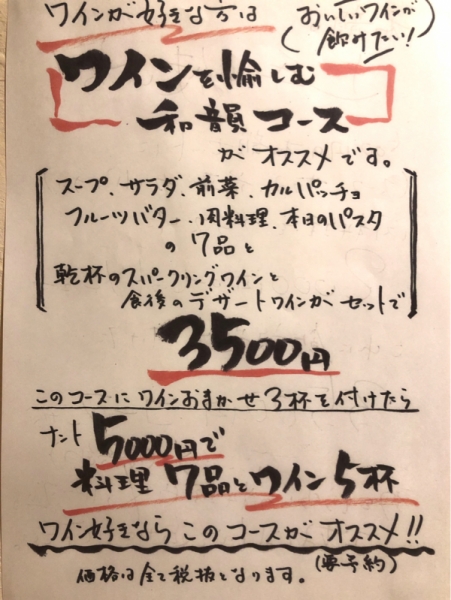 ワインが好きな方は
(おいしいワインが
飲みたい!)
ワインを愉しむ
和韻コース
がオススメです。
スープ、サラダ、前菜、カルパッチョ
フルーツバター、肉料理、本日のパスタ
の7品と
乾杯のスパークリングワインと
食後のデザートワインがセットで
3500円
このコースにワインおまかせ3杯を付けたら
ナント5000円で
料理7品とワイン5杯
ワイン好きならこのコースがオススメ!!
(要予約)
価格は全て税抜となります。